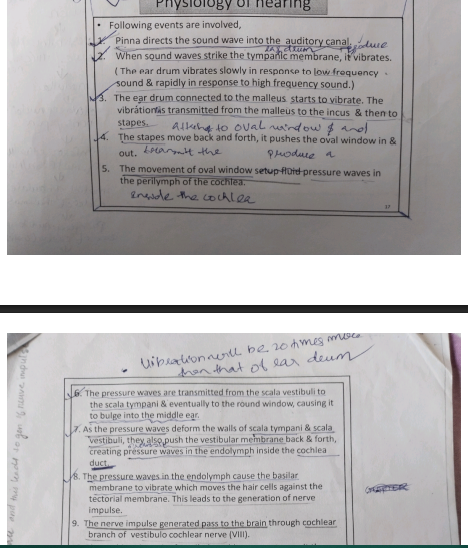 Physiology of hearing
• Following events are involved,
1. Pinna directs the sound wave into the auditory canal.
ear drum
produce
2. When sound waves strike the tympanic membrane, it vibrates.
( The ear drum vibrates slowly in response to low frequency
sound & rapidly in response to high frequency sound.)
3. The ear drum connected to the malleus starts to vibrate. The
vibration is transmitted from the malleus to the incus & then to
stapes. to oval window & and
4. The stapes move back and forth, it pushes the oval window in &
out. transmit the produce a
5. The movement of oval window setup fluid pressure waves in
the perilymph of the cochlea.
inside the cochlea
17
• Vibration will be 20 times more
than that of ear drum
6. The pressure waves are transmitted from the scala vestibuli to
the scala tympani & eventually to the round window, causing it
to bulge into the middle ear.
7. As the pressure waves deform the walls of scala tympani & scala
vestibuli, they also push the vestibular membrane back & forth,
creating pressure waves in the endolymph inside the cochlea
duct.
8. The pressure waves in the endolymph cause the basilar
membrane to vibrate which moves the hair cells against the
tectorial membrane. This leads to the generation of nerve
impulse.
9. The nerve impulse generated pass to the brain through cochlear
branch of vestibulo cochlear nerve (VIII).
and this leads to gen of nerve impuls